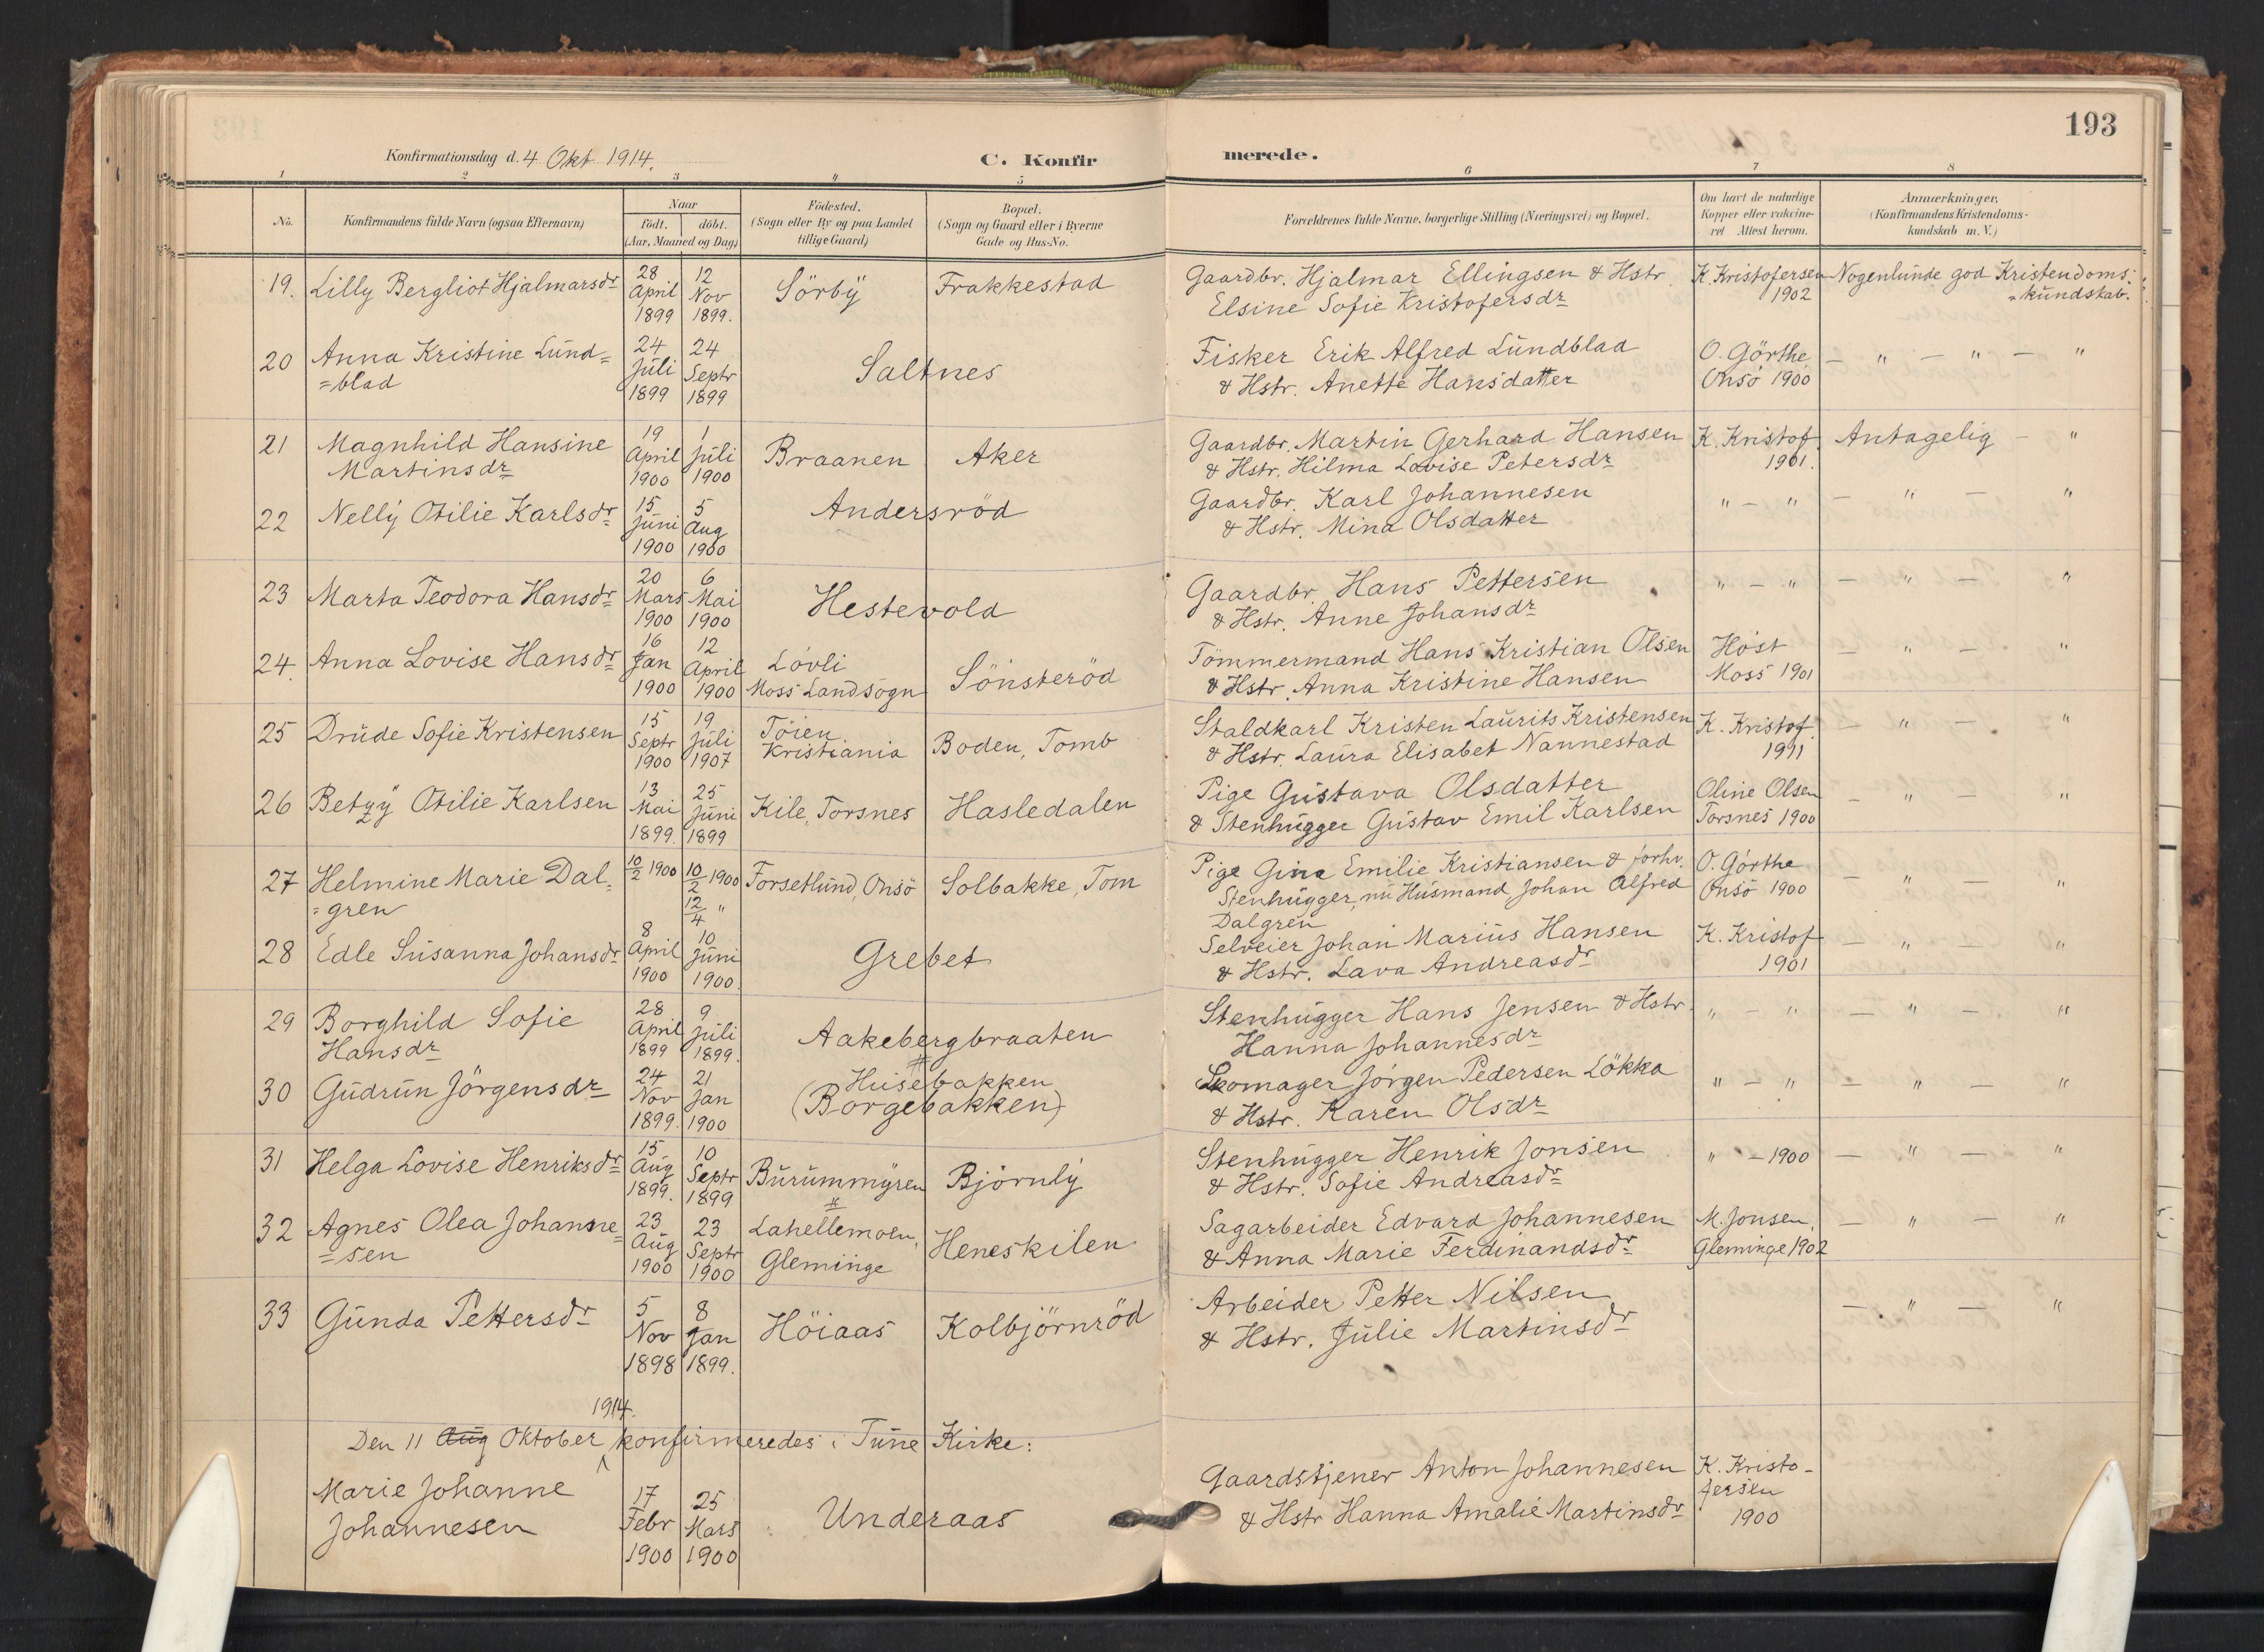 193
Konfirmationsdag d. 4 Okt 1914.
C. Konfirmerede.
1 2 3 4 5 6 7 8
No.
Konfirmandens fulde Navn (ogsaa Efternavn)
Naar
födt. döbt.
(Aar, Maaned og Dag)
Födested.
(Sogn eller By og paa Landet
tillige Gaard)
Bopæl.
(Sogn og Gaard eller i Byerne
Gade og Hus-No.
Forældrenes fulde Navne, borgerlige Stilling (Næringsvei) og Bopæl.
Om havt de naturlige
Kopper eller vaccine-
ret Attest herom.
Anmærkninger.
(Konfirmandens Kristendoms-
kundskab m. V.)
19. Lilly Bergliot Hjalmarsdr
28 April 1899
12 Nov 1899.
Sörby
Frakkestad
Gaardbr. Hjalmar Ellingsen & Hstr.
Elsine Sofie Kristofersdr
K. Kristofersen
1902
Nogenlunde god Kristendoms-
kundskab.
20 Anna Kristine Lund=
=blad
24 Juli 1899
24 Septr 1899
Saltnes
Fisker Erik Alfred Lundblad
& Hstr. Anette Hansdatter
O. Görthe
Onsö 1900
— " — " — "
21 Magnhild Hansine
Martinsdr
19 April 1900
1 Juli 1900
Braanen
Aker
Gaardbr. Martin Gerhard Hansen
& Hstr. Hilma Lovise Petersdr
K. Kristof.
1901.
Antagelig — "
22 Nelly Otilie Karlsdr
15 Juni 1900
5 Aug 1900
Andersröd
Gaardbr. Karl Johannesen
& Hstr. Mina Olsdatter
" — "
— " — "
23 Marta Teodora Hansdr
20 Mars 1900
6 Mai 1900
Hestevold
Gaardbr. Hans Pettersen
& Hstr. Anne Johansdr
" — "
— " — "
24. Anna Lovise Hansdr
16 Jan 1900
12 April 1900
Lövli
Moss Landsogn
Sönsteröd
Tömmermand Hans Kristian Olsen
& Hstr. Anna Kristine Hansen
Höst
Moss 1901
— " — "
25 Drude Sofie Kristensen
15 Septr 1900
19 Juli 1907
Töien
Kristiania
Boden, Tomb
Staldkarl Kristen Laurits Kristensen
& Hstr. Laura Elisabet Nannestad
K. Kristof.
1911
— " — "
26 Betzy Otilie Karlsen
13 Mai 1899.
25 Juni 1899
Kile, Torsnes
Hasledalen
Pige Gustava Olsdatter
& Stenhugger Gustav Emil Karlsen
Oline Olsen
Torsnes 1900
— " — "
27 Helmine Marie Dal=
=gren
10/2 1900
10/2 1900
12/4 "
Forsetlund, Onsö
Solbakke, Tom
Pige Gina Emilie Kristiansen & forhv.
Stenhugger, nu Husmand Johan Alfred
Dalgren
O. Görthe
Onsö 1900
— " — "
28 Edle Susanna Johansdr
8 April 1900
10 Juni 1900.
Grebet
Selveier Johan Marius Hansen
& Hstr. Lava Andreasdr
K. Kristof
1901
— " — "
29 Borghild Sofie
Hansdr
28 April 1899
9 Juli 1899.
Aakebergbraaten
Stenhugger Hans Jensen & Hstr.
Hanna Johannesdr
" — "
— " — "
30 Gudrun Jörgensdr
24 Nov 1899.
21 Jan 1900
Husebakken
(Borgebakken)
Skomager Jörgen Pedersen Lökka
& Hstr. Karen Olsdr
" — "
— " — "
31 Helga Lovise Henriksdr
15 Aug 1899.
10 Septr 1899
Burummyren
Björnly
Stenhugger Henrik Jonsen
& Hstr. Sofie Andreasdr
" — 1900
— " — "
32 Agnes Olea Johanne=
=sen
23 Aug 1900
23 Septr 1900
Lahellemoen,
Gleminge
Heneskilen
Sagarbeider Edvard Johannesen
& Anna Marie Ferdinandsdr
M. Jonsen,
Gleminge 1902
— " — "
33 Gunda Pettersdr
5 Nov 1898
8 Jan 1899.
Höiaas
Kolbjörnröd
Arbeider Petter Nilsen
& Hstr. Julie Martinsdr
— " — "
1914.
Den 11 Aug Oktober konfirmeredes i Tune Kirke:
Marie Johanne
Johannesen
17 Febr 1900
25 Mars 1900
Underaas
Gaardstjener Anton Johannesen
& Hstr Hanna Amalie Martinsdr
K. Kristo-
fersen
1900